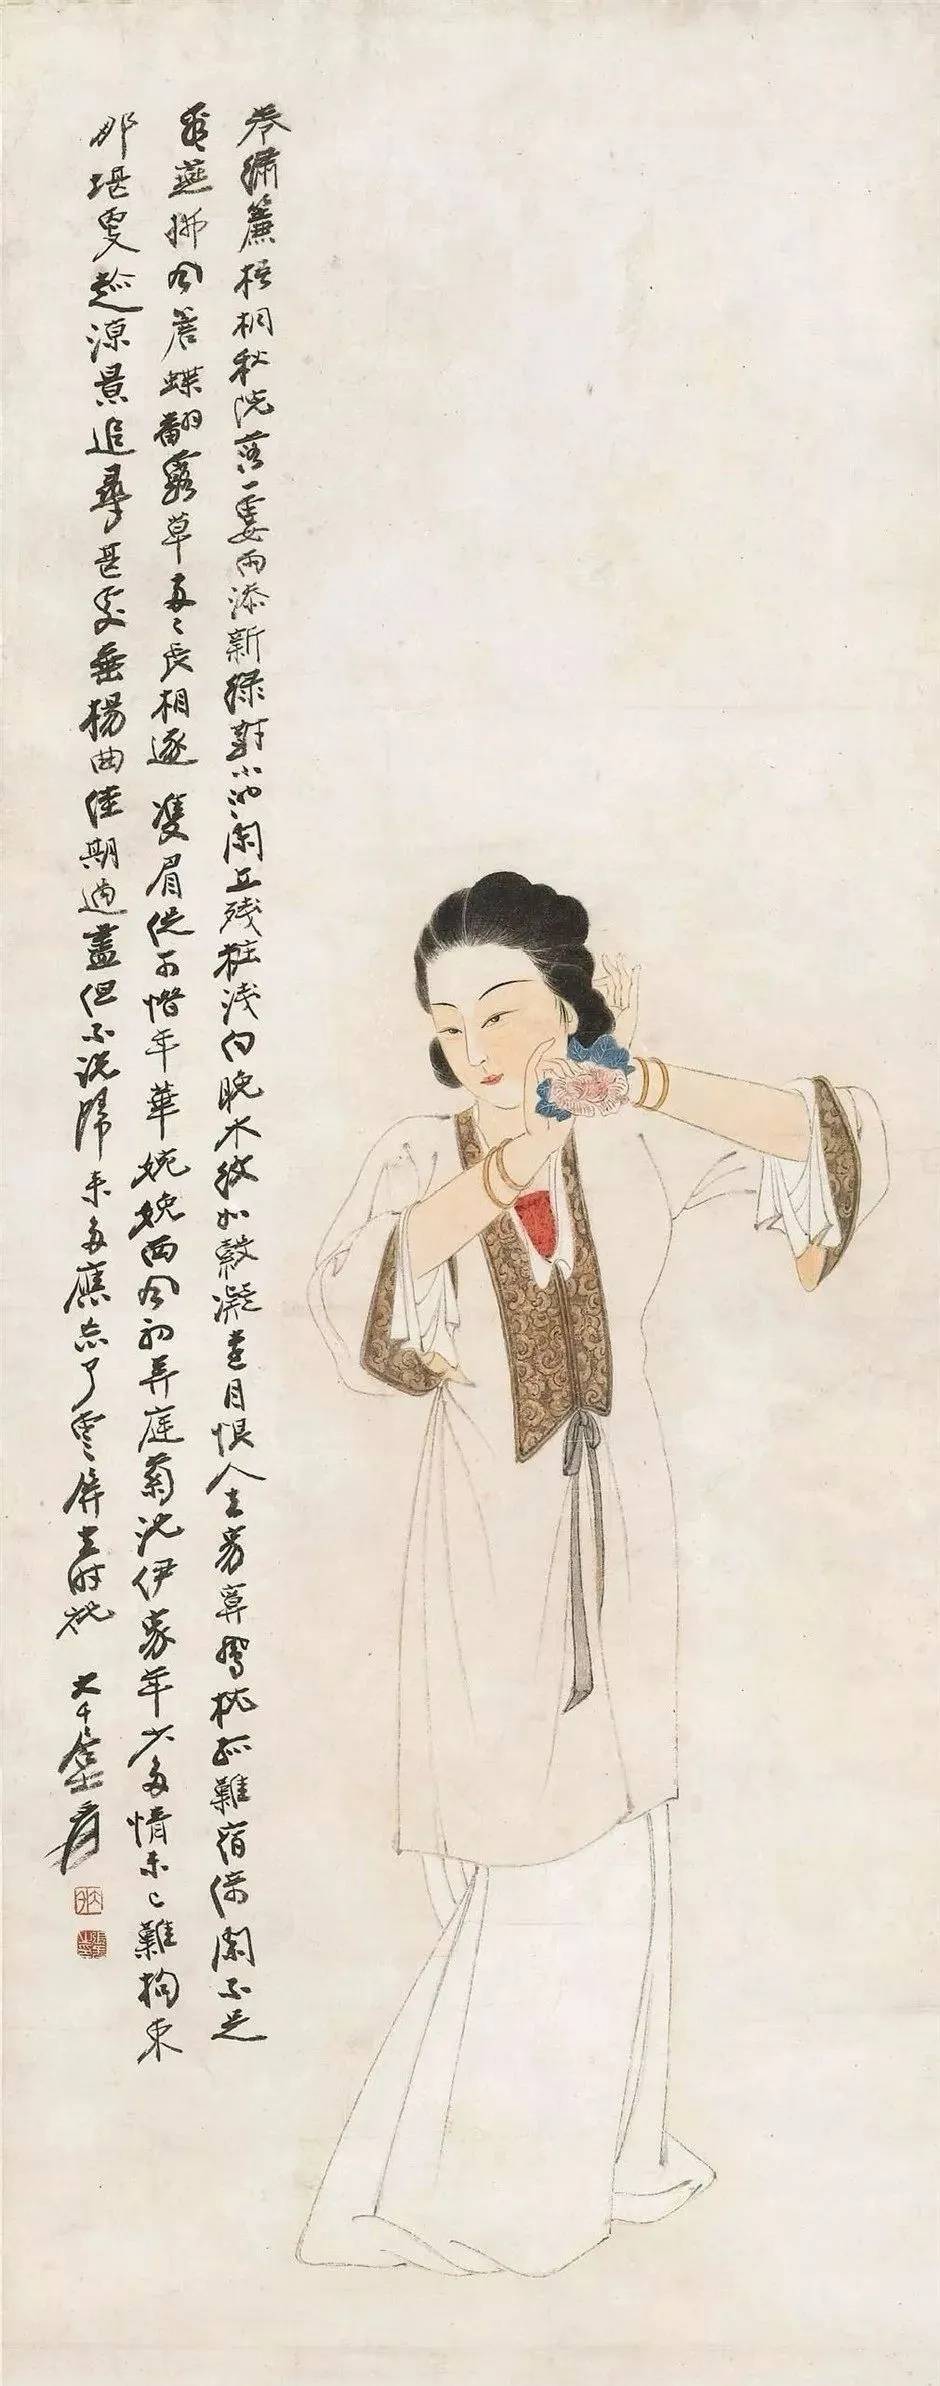 卷繡簾梧桐秋院落一霎雨添新綠對小池閑立殘粧淺向晚水紋如縠凝遠目恨人去寂寂鳳枕孤難宿倚闌不足
看燕拂風簷蝶翻露草兩兩長相逐 雙眉促可惜年華婉娩西風初弄庭菊況伊家年少多情未已難拘束
那堪更趁涼景追尋甚處垂楊曲佳期過盡但不說歸來多應忘了雲屏去時祝 大千居士爰